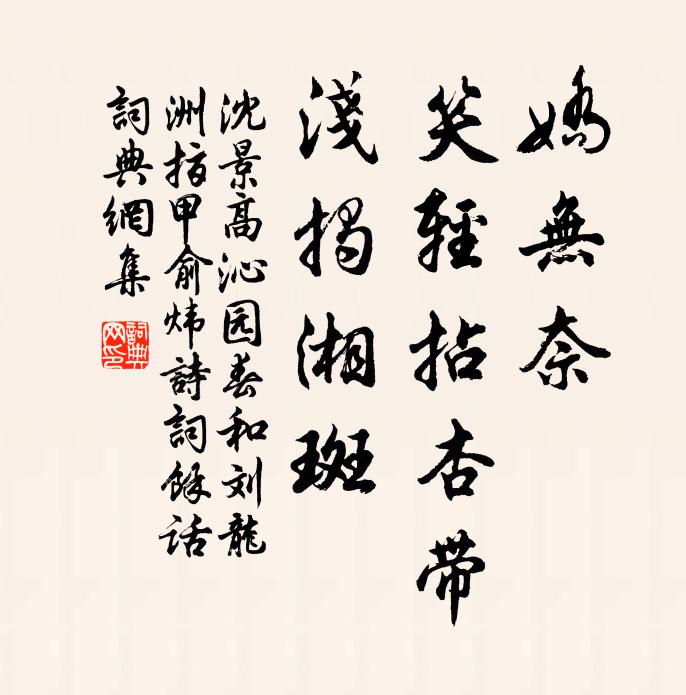 嬌無奈
笑輕拈杏带
淺揭湘斑
沈景高沁园春和刘龍
洲指甲俞炜詩詞餘话
詞典網集
詞典網印